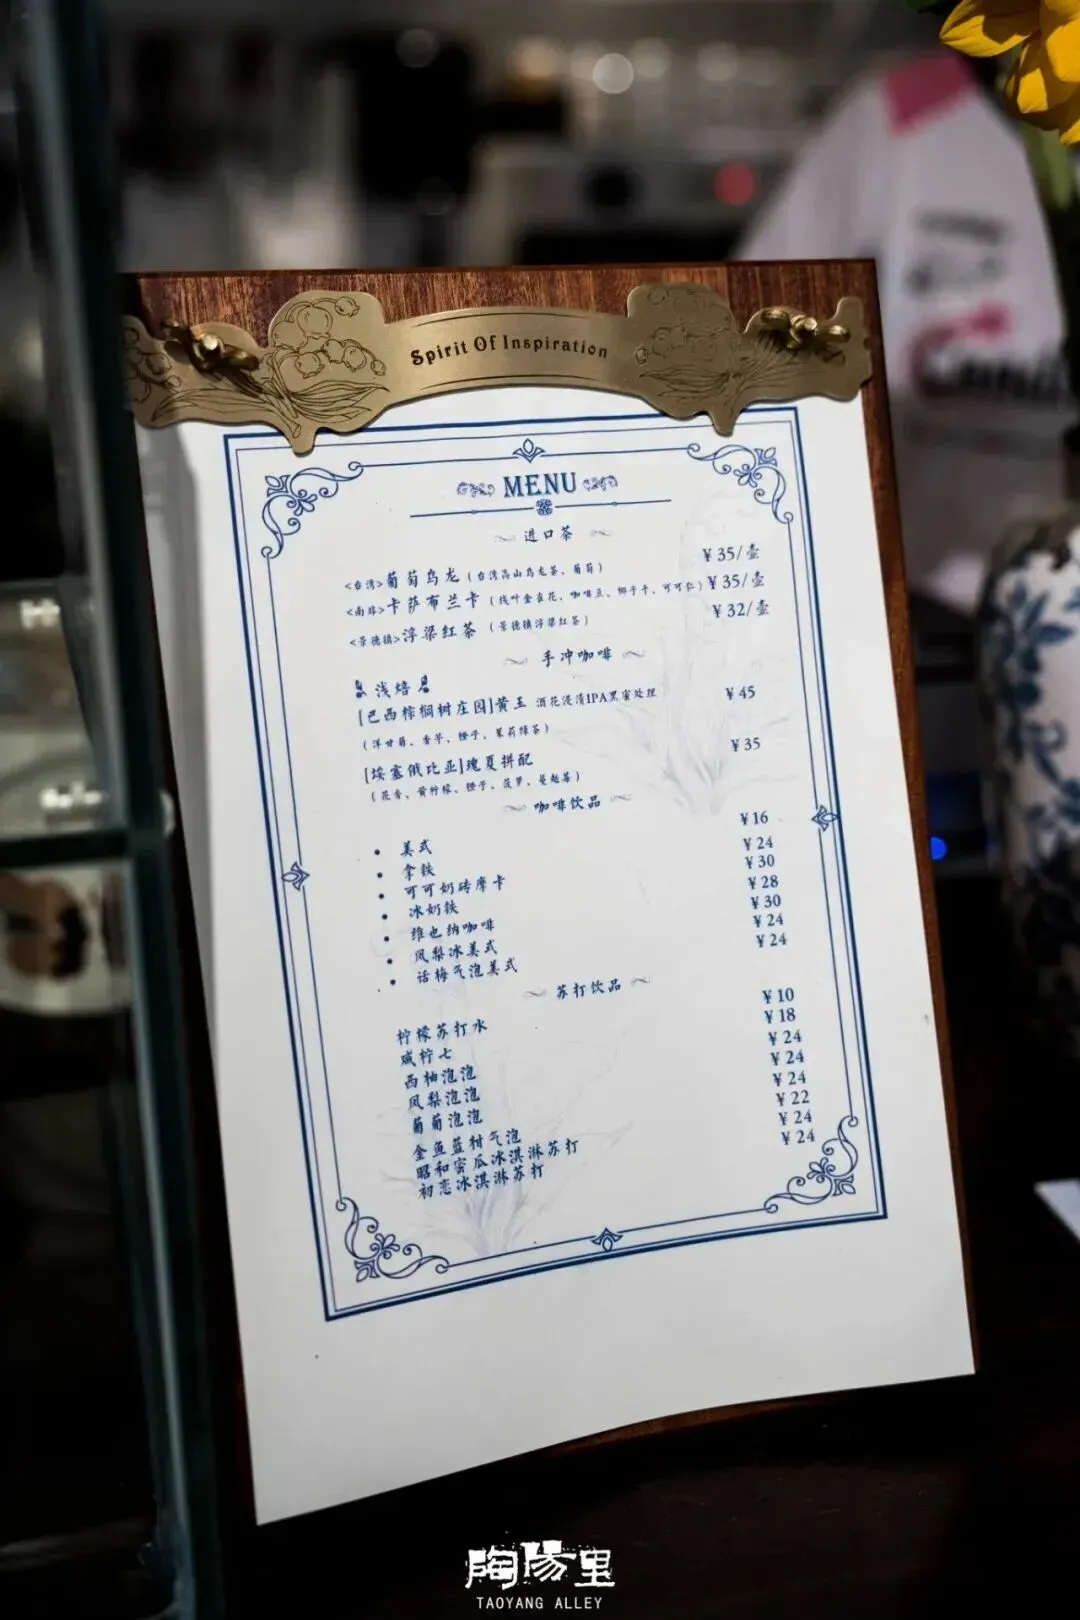 Spirit Of Inspiration
MENU
进口茶
<台湾>葡萄乌龙(台湾高山乌龙茶、葡萄) ¥35/壶
<南非>卡萨布兰卡(线叶金雀花、咖啡豆、椰子干、可可仁) ¥35/壶
<景德镇>浮梁红茶(景德镇浮梁红茶) ¥32/壶
手冲咖啡
浅焙
[巴西棕榈树庄园]黄玉 酒花浸渍IPA黑蜜处理 ¥45
(洋甘菊、香芋、橙子、茉莉绿茶)
[埃塞俄比亚]瑰夏拼配 ¥35
(花香、黄柠檬、橙子、菠萝、蔓越莓)
咖啡饮品
• 美式 ¥16
• 拿铁 ¥24
• 可可奶砖摩卡 ¥30
• 冰奶铁 ¥28
• 维也纳咖啡 ¥30
• 凤梨冰美式 ¥24
• 话梅气泡美式 ¥24
苏打饮品
柠檬苏打水 ¥10
咸柠七 ¥18
西柚泡泡 ¥24
凤梨泡泡 ¥24
葡萄泡泡 ¥24
金鱼蓝柑气泡 ¥22
昭和密瓜冰淇淋苏打 ¥24
初恋冰淇淋苏打 ¥24
陶阳里
TAOYANG ALLEY